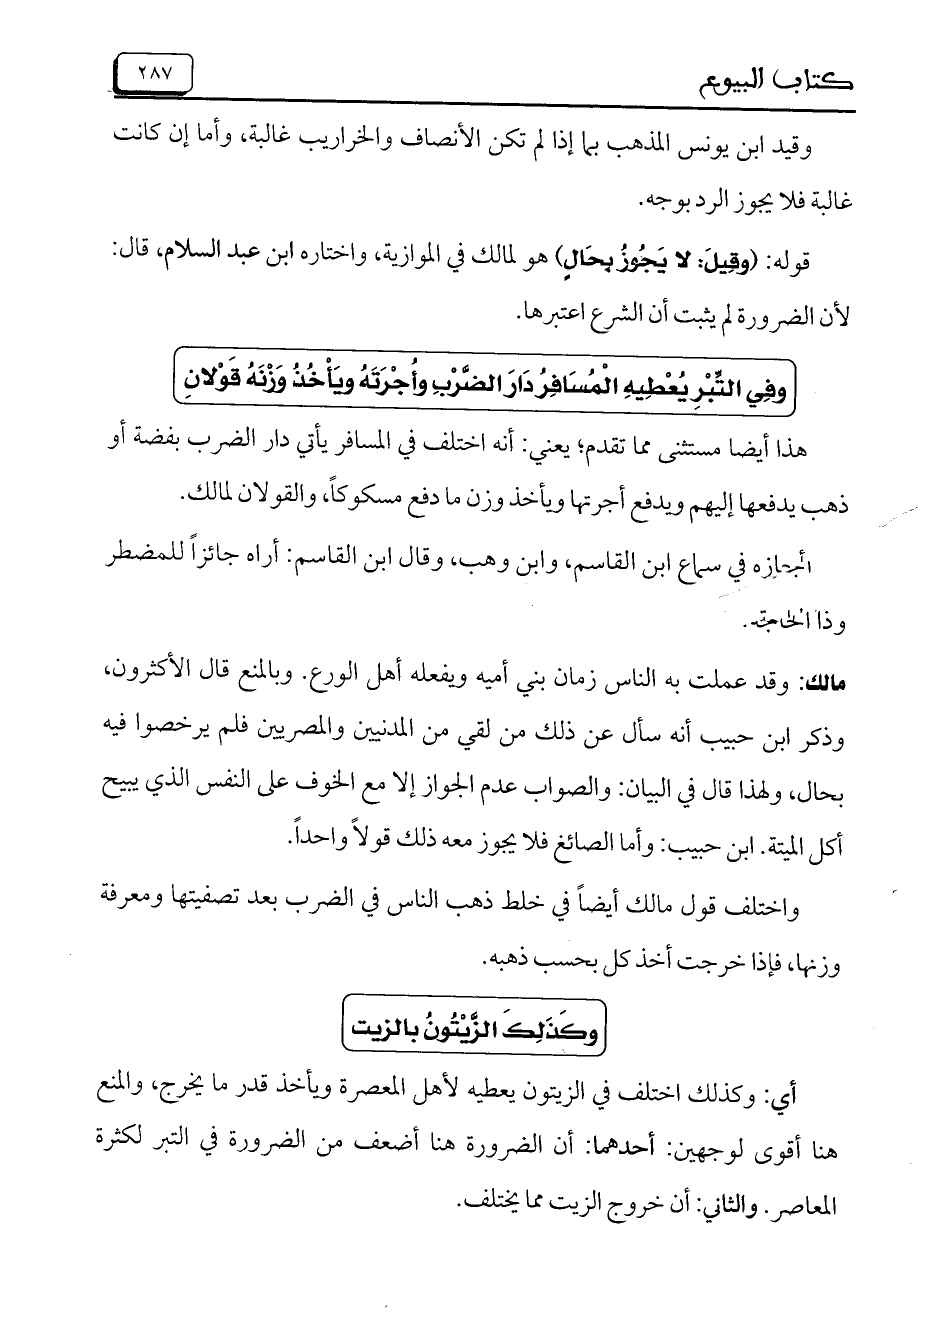 كتاب البيوع
٢٨٧
وقيد ابن يونس المذهب بما إذا لم تكن الأنصاف والخراريب غالبة، وأما إن كانت
غالبة فلا يجوز الرد بوجه.
قوله: (وقِيلَ: لا يَجُوزُ بِحَالٍ) هو لمالك في الموازية، واختاره ابن عبد السلام، قال:
لأن الضرورة لم يثبت أن الشرع اعتبرها.
وفِي التِّبْرِ يُعْطِيهِ الْمُسَافِرُ دَارَ الضَّرْبِ وأُجْرَتَهُ ويَأْخُذُ وَزْنَهُ قَوْلانِ
هذا أيضا مستثنى مما تقدم؛ يعني: أنه اختلف في المسافر يأتي دار الضرب بفضة أو
ذهب يدفعها إليهم ويدفع أجرتها ويأخذ وزن ما دفع مسكوكاً، والقولان لمالك.
أجازه في سماع ابن القاسم، وابن وهب، وقال ابن القاسم: أراه جائزاً للمضطر
وذا الحاجة.
مالك: وقد عملت به الناس زمان بني أميه ويفعله أهل الورع. وبالمنع قال الأكثرون،
وذكر ابن حبيب أنه سأل عن ذلك من لقي من المدنيين والمصريين فلم يرخصوا فيه
بحال، ولهذا قال في البيان: والصواب عدم الجواز إلا مع الخوف على النفس الذي يبيح
أكل الميتة. ابن حبيب: وأما الصائغ فلا يجوز معه ذلك قولاً واحداً.
واختلف قول مالك أيضاً في خلط ذهب الناس في الضرب بعد تصفيتها ومعرفة
وزنها، فإذا خرجت أخذ كل بحسب ذهبه.
وكَذَلِكَ الزَّيْتُونُ بالزيت
أي: وكذلك اختلف في الزيتون يعطيه لأهل المعصرة ويأخذ قدر ما يخرج، والمنع
هنا أقوى لوجهين: أحدهما: أن الضرورة هنا أضعف من الضرورة في التبر لكثرة
المعاصر. والثاني: أن خروج الزيت مما يختلف.